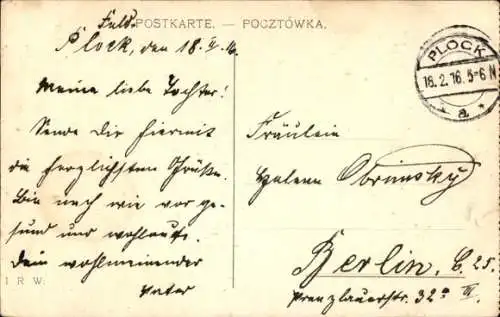 Feld-
POSTKARTE. — POCZTÓWKA.
Plock, den 18.II.16.
Meine liebe Tochter!
Sende Dir hiermit
die herzlichsten Grüße.
Bin nach wie vor ge-
sund und wohlauf.
Dein wohlmeinender
Vater
I R W:
PLOCK
18.2.16. 5-6 N
* a *
Fräulein
Helene Obrinsky
Berlin, C. 25.
Prenzlauerstr. 32a III.